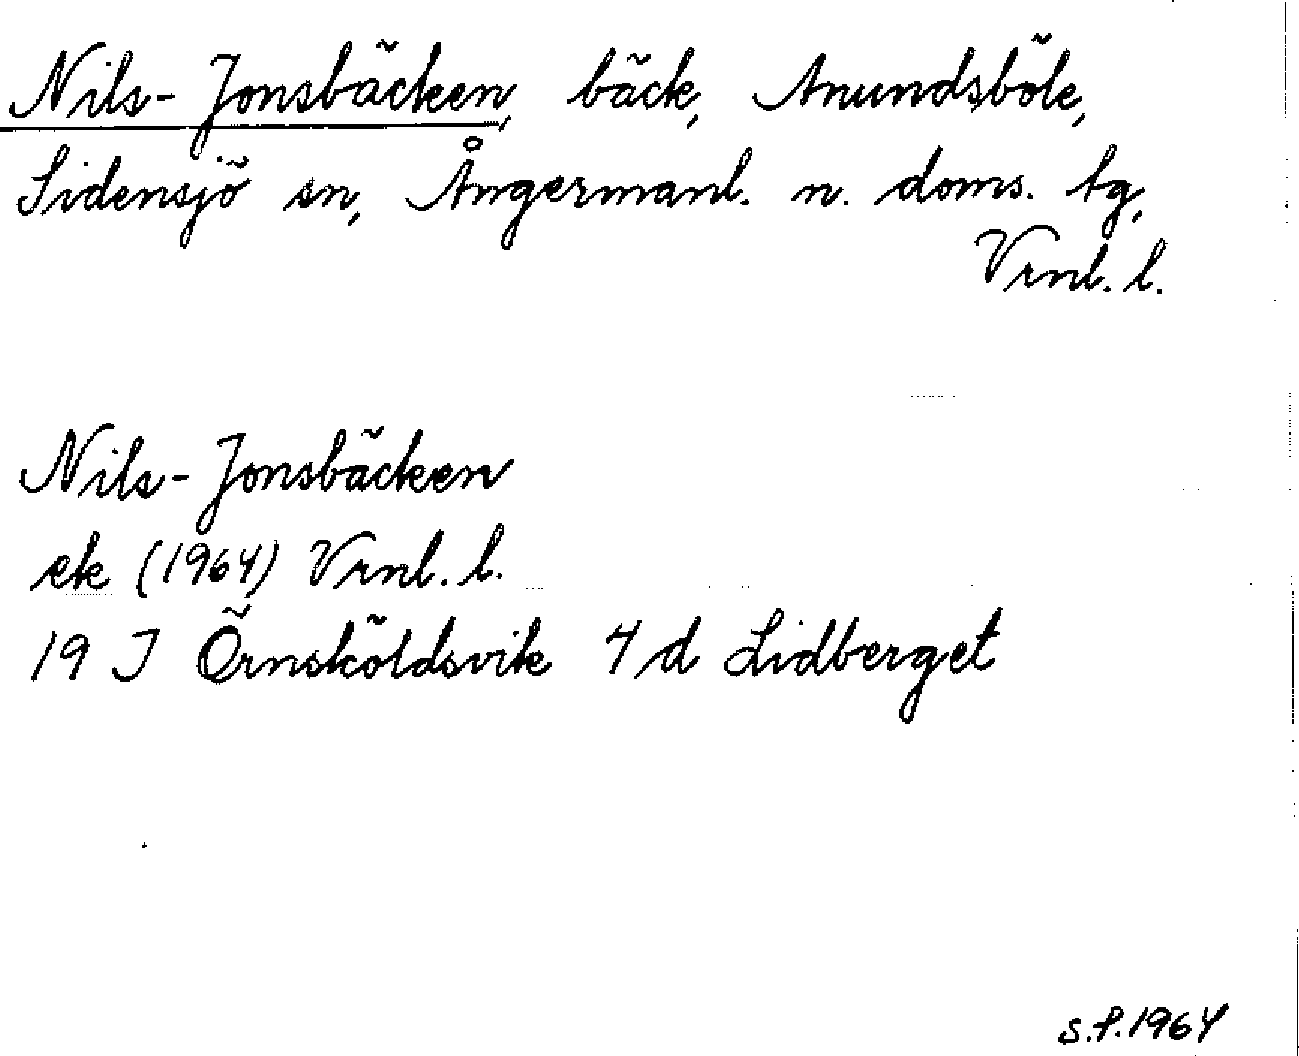 Nils-Jonsbäcken, bäck, Anundsböle,
Sidensjö sn, Ångermanl. n. doms. tg,
Vrnl. l.
Nils-Jonsbäcken
ek (1964) Vrnl. l.
19 J Örnsköldsvik 4 d Lidberget
S.P. 1964